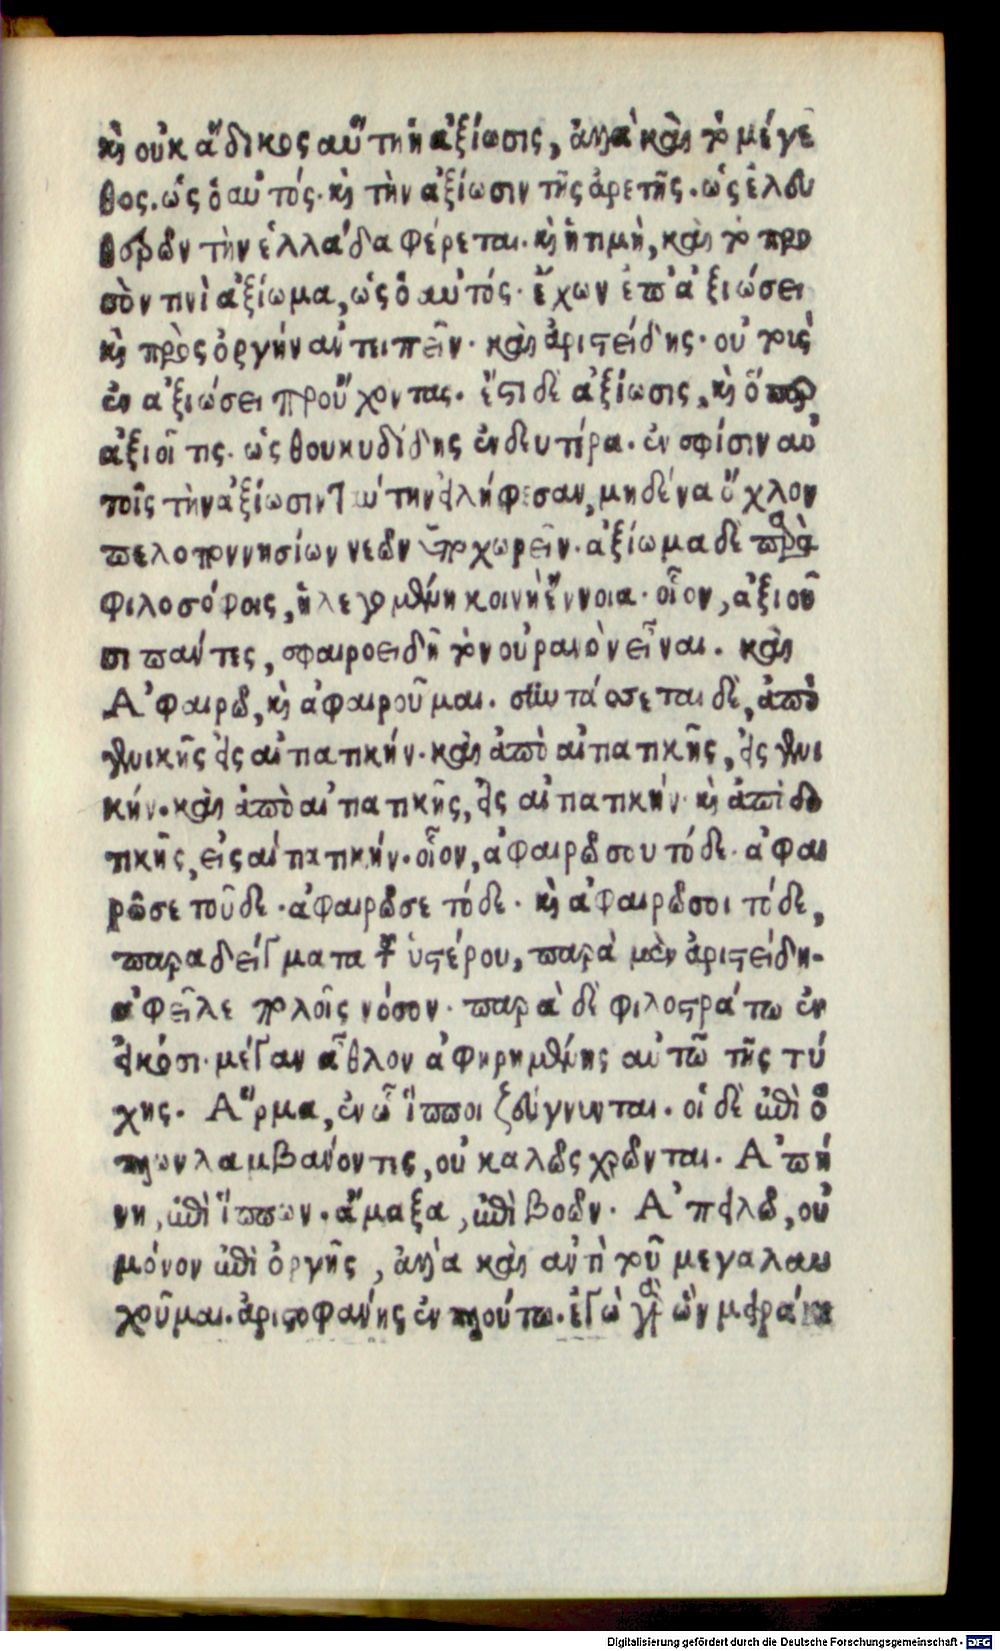 καὶ οὐκ ἄδικος αὕτη ἡ ἀξίωσις, ἀλλὰ καὶ τὸ μέγε
θος. ὡς ὁ αὐτός. καὶ τὴν ἀξίωσιν τῆς ἀρετῆς. ὡς ἐλευ
θερῶν τὴν ἑλλάδα φέρεται. καὶ ἡ τιμὴ, καὶ τὸ προ
σὸν τινὶ ἀξίωμα, ὡς ὁ αὐτός. ἔχων ἐπ' ἀξιώσει
καὶ πρὸς ὀργήν ἀντειπεῖν. καὶ ἀριστείδης. οὐ τοὺς
ἐν ἀξιώσει προὔχοντας. ἔστι δὲ ἀξίωσις, καὶ ὅπερ
ἀξιοῖ τις. ὡς θουκυδίδης ἐν δευτέρα. ἐν σφίσιν αὐ
τοῖς τὴν ἀξίωσιν ταύτην εἰλήφεσαν, μηδένα ὄχλον
πελοποννησίων νεῶν ὑποχωρεῖν. ἀξίωμα δὲ παρὰ
φιλοσόφοις, ἡ λεγομένη κοινὴ ἔννοια. οἷον, ἀξιοῦ
σι πάντες, σφαιροειδῆ τὸν οὐρανὸν εἶναι. καὶ
Ἀφαιρῶ, καὶ ἀφαιροῦμαι. συντάσσεται δὲ, ἀπὸ
γενικῆς εἰς αἰτιατικήν. καὶ ἀπὸ αἰτιατικῆς, εἰς γενι
κήν. καὶ ἀπὸ αἰτιατικῆς, εἰς αἰτιατικήν. καὶ ἀπὸ δο
τικῆς, εἰς αἰτιατικήν. οἷον, ἀφαιρῶ σου τόδε. ἀφαι
ρῶ σε τοῦδε. ἀφαιρῶ σε τόδε. καὶ ἀφαιρῶ σοι τόδε,
παραδείγματα τοῦ ὑστέρου, παρὰ μὲν ἀριστείδη.
ἀφεῖλε πολλοῖς νόσον. παρὰ δὲ φιλοστράτω ἐν
εἰκόσι. μέγαν ἆθλον ἀφηρημένης αὐτῶ τῆς τύ
χης. Ἅρμα, ἐν ᾧ ἵπποι ζεύγνυνται. οἱ δὲ ἐπὶ ὅ
πλων λαμβάνοντες, οὐ καλῶς χρῶνται. Ἀπή
νη, ἐπὶ ἵππων. ἅμαξα, ἐπὶ βοῶν. Ἀπειλῶ, οὐ
μόνον ἐπὶ ὀργῆς, ἀλλὰ καὶ ἀντὶ τοῦ μεγαλαυ
χοῦμαι. ἀριστοφάνης ἐν πλούτω. ἐγὼ γὰρ ὢν μειράκι
Digitalisierung gefördert durch die Deutsche Forschungsgemeinschaft - DFG